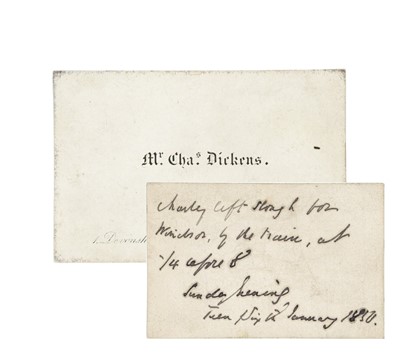 Mr. Chas. Dickens.
1 Devonsh
Charley left Slough for
Windsor, by the train, at
1/4 before 8
Sunday Evening
January 1850.